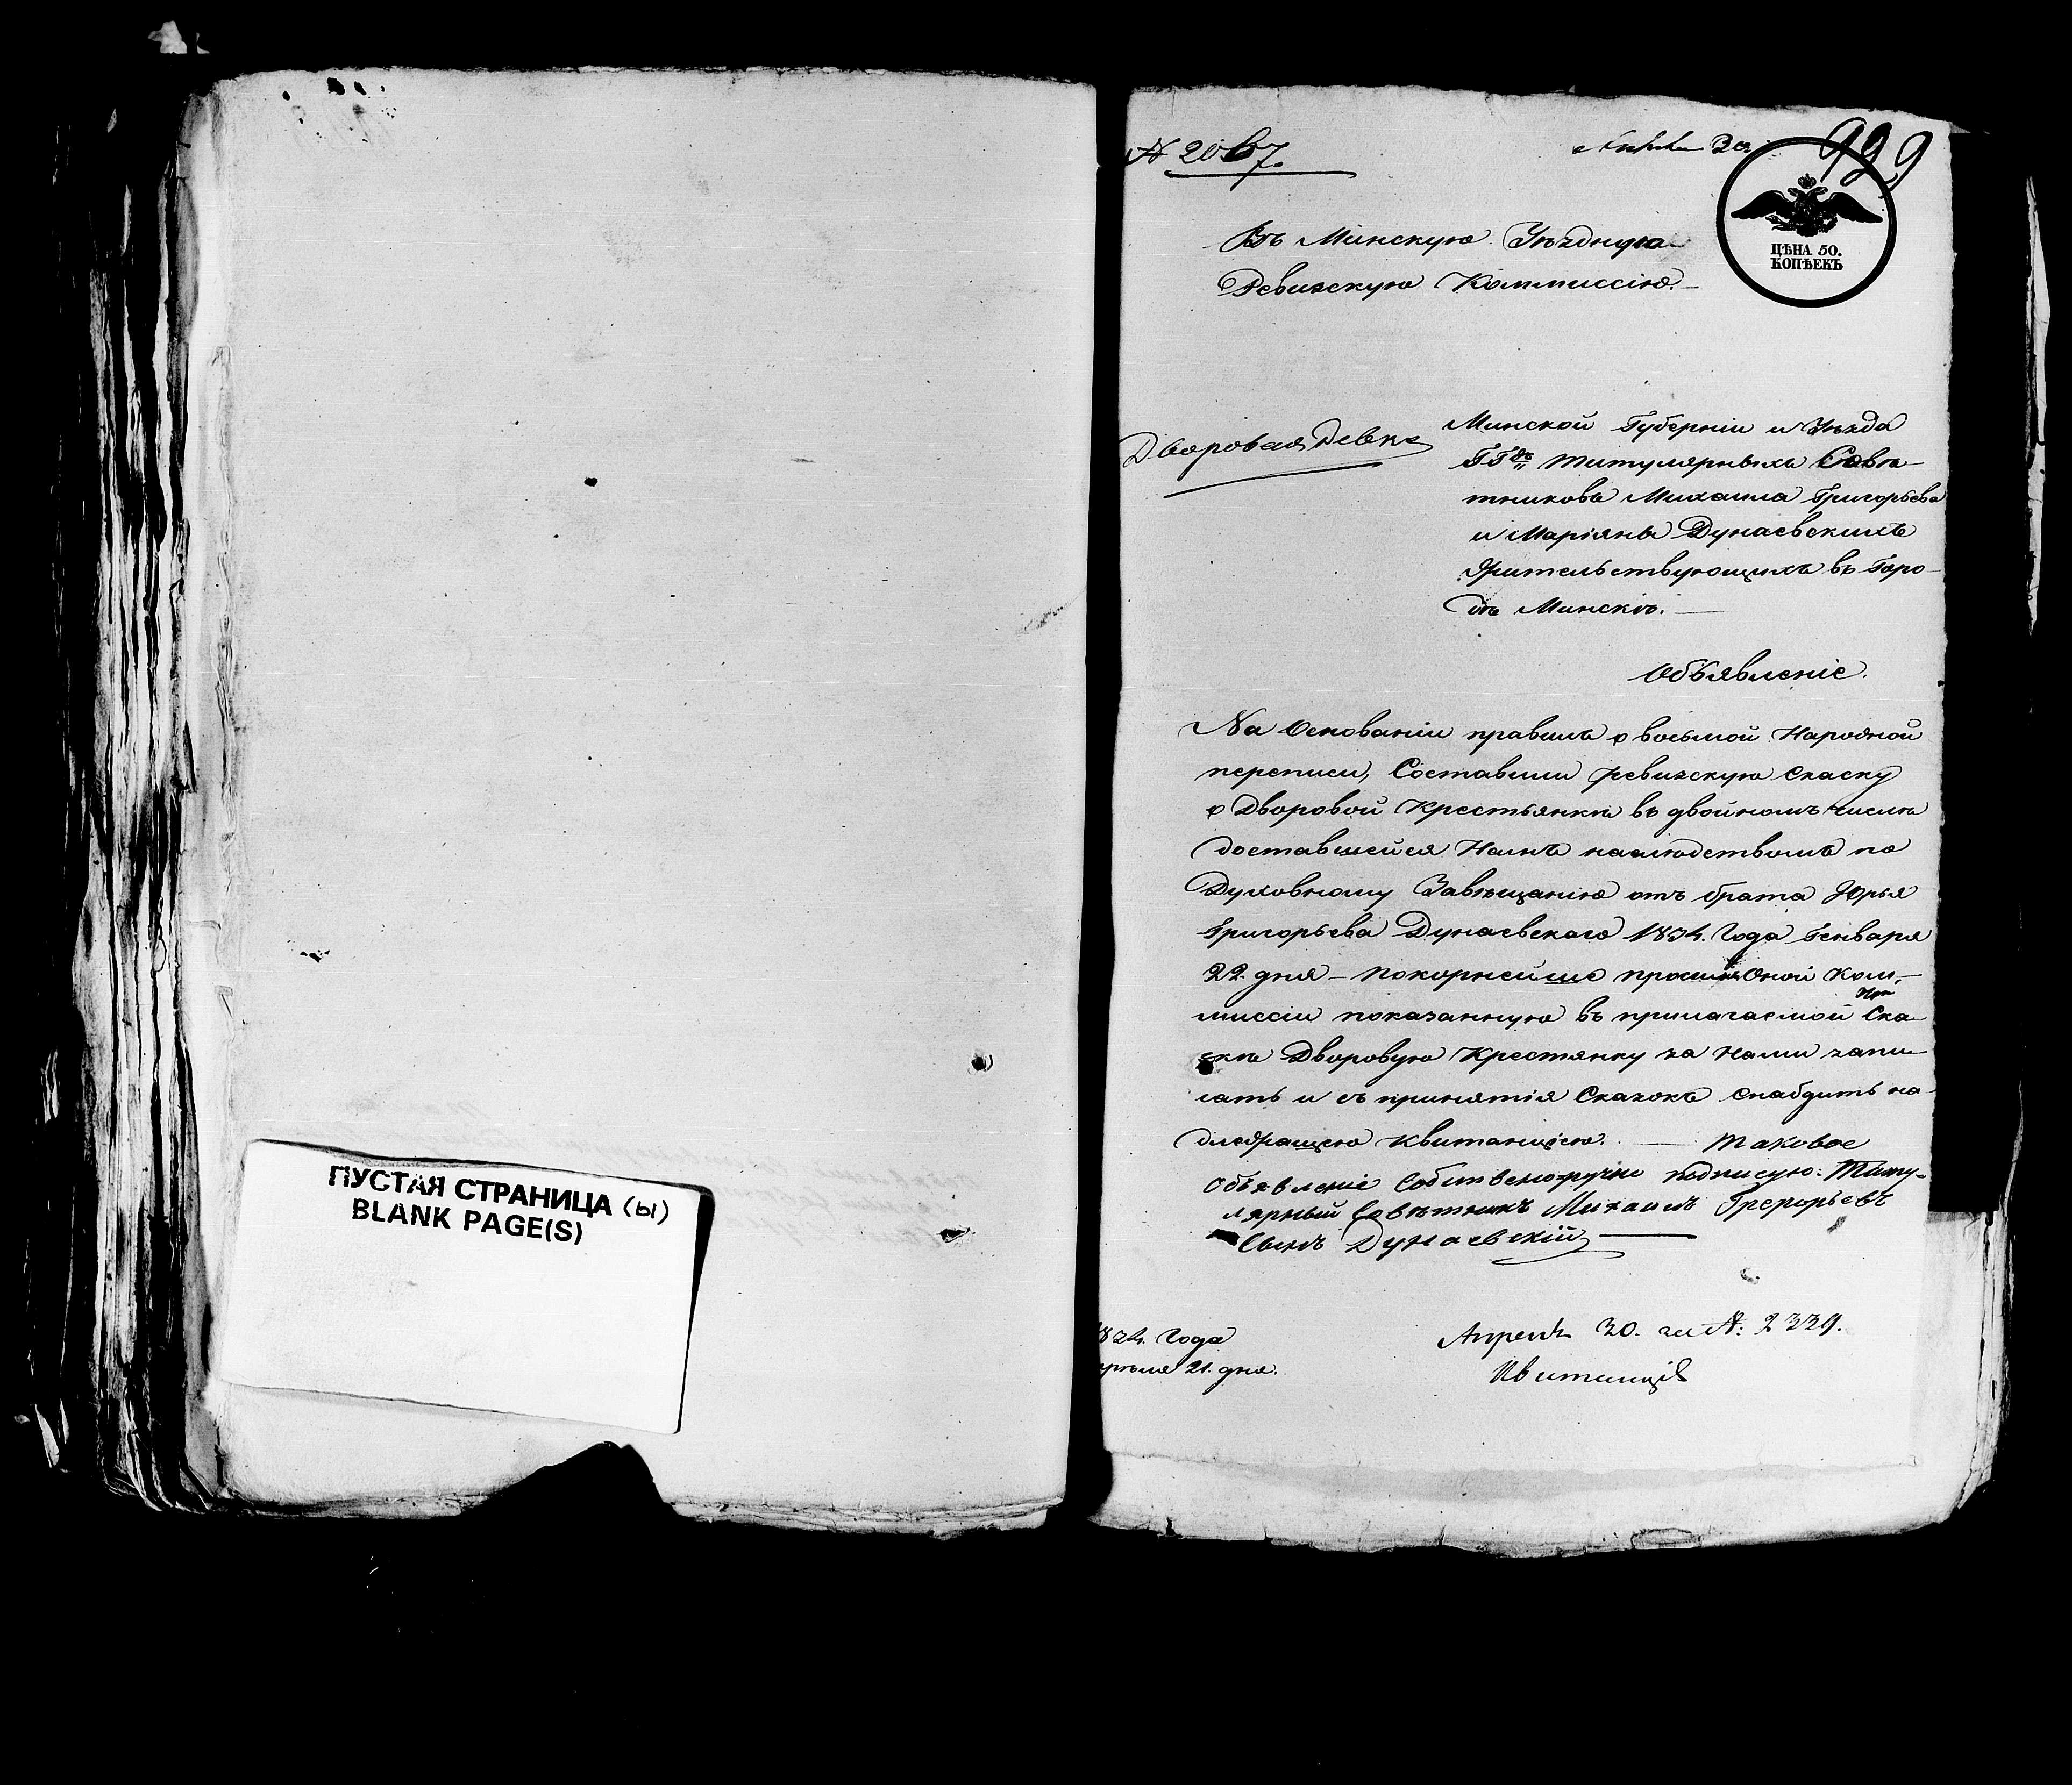 ПУСТАЯ СТРАНИЦА (Ы)
BLANK PAGE(S)
№ 2067.
30
929
ЦѢНА 50.
КОПѢЕКЪ
Въ Минскую Уѣздную
Ревизскую Коммиссію.
Дворовая Девка
Минской Губерніи и Уѣзда
ГГдъ Титулярныхъ Совѣ-
тниковъ Михаила Григорьева
и Маріяна Дунаевскихъ
Жительствующихъ въ Горо-
дѣ Минскѣ. —
Объявленіе.
На Основаніи правилъ о восьмой Народной
переписи, Составили ревизскую скаску
о Дворовой Крестьянкѣ въ двойномъ числѣ
доставшейся Намъ наслѣдствомъ по
Духовному Завѣщанію отъ брата Юрья
Григорьева Дунаевскаго 1834. Года Генваря
22. дня — покорнейше просимъ Оной Ком-
миссіи показанную въ прилагаемой Ска-
зкѣ Дворовую Крестянку за Нами запи-
сать и съ принятія Сказокъ снабдить на-
длежащею Квитанціею. — Таковое
Объявленіе Собственоручно подписую: Титу-
лярный Совѣтникъ Михаилъ Грегорьевъ
Сынъ Дунаевскій
1834. Года
Апрѣля 21. дня.
Апреля 30. за №: 2339.
Квитанція